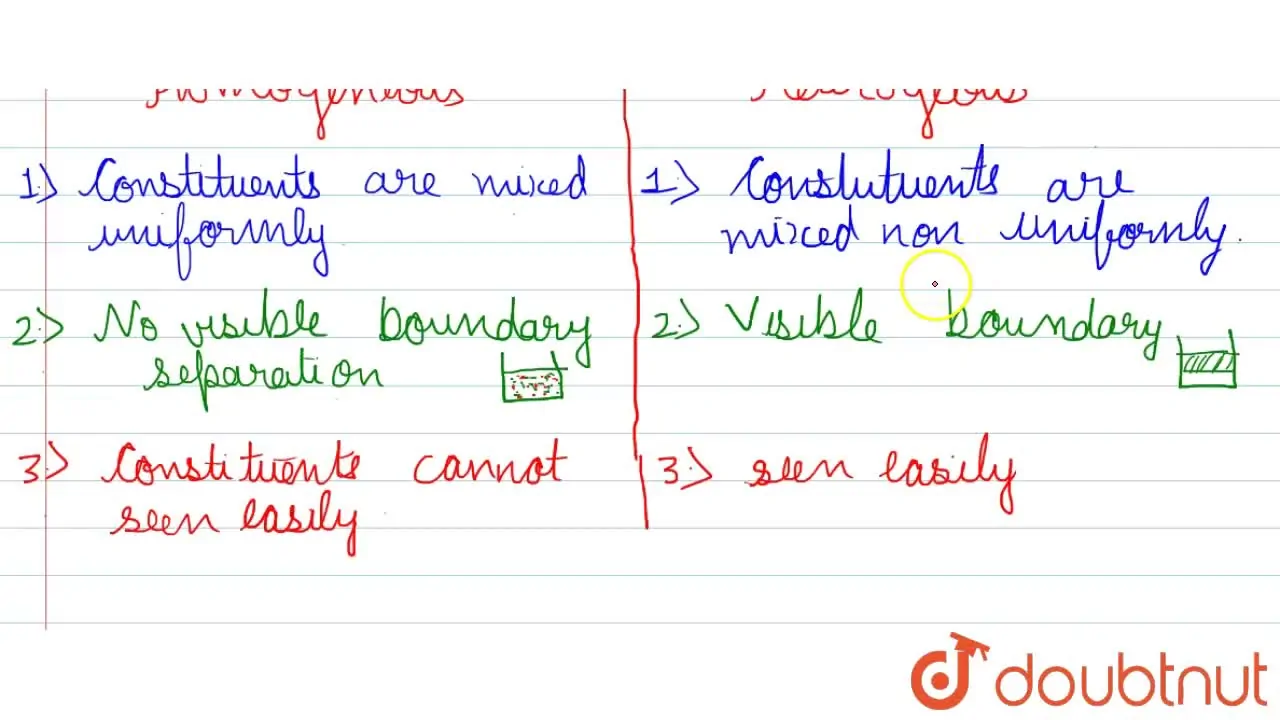 Homogeneous
1) Constituents are mixed
uniformly
2) No visible boundary
separation
3) Constituents cannot
seen easily
1) Conslutuents are
mixced non uniformly.
2) Visible boundary
3) seen easily
doubtnut